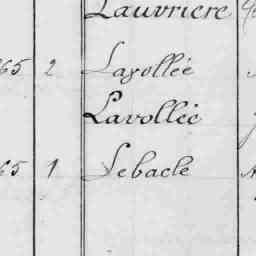 Lauvrière
65 2 Layollée
Lavollée
65 1 Lebacle